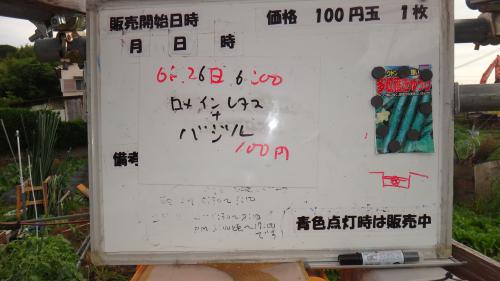 販売開始日時 価格 100円玉 1枚
月 日 時
6月 26日 6:00
ロメインレタス
+
バジル
100円
備考
青色点灯時は販売中